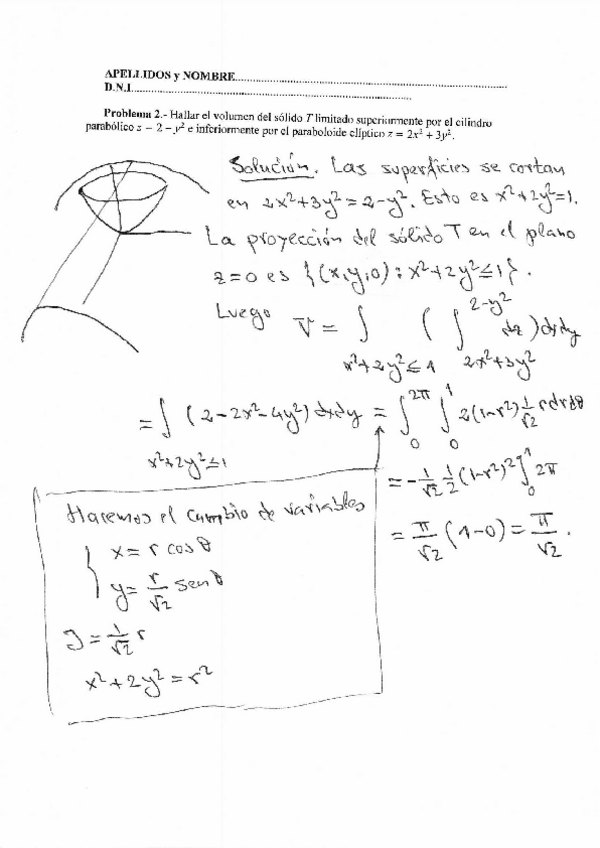 APELLIDOS y NOMBRE........................................................................
D.N.I........................................................................
Problema 2.- Hallar el volumen del sólido T limitado superiormente por el cilindro
parabólico z = 2 − y² e inferiormente por el paraboloide elíptico z = 2x² + 3y².
Solución. Las superficies se cortan
en 2x²+3y²=2-y². Esto es x²+2y²=1.
La proyección del sólido T en el plano
z=0 es {(x,y,0): x²+2y²≤1}.
Luego V = ∫_{x²+2y²≤1} ( ∫_{2x²+3y²}^{2-y²} dz ) dxdy
= ∫_{x²+2y²≤1} (2-2x²-4y²) dxdy = ∫_0^{2π} ∫_0^1 2(1-r²) 1/√2 r dr dθ
= - 1/√2 1/2 (1-r²)² ]_0^1 2π
= π/√2 (1-0) = π/√2.
Hacemos el cambio de variables
{ x = r cos θ
y = r/√2 sen θ
J = 1/√2 r
x²+2y² = r²